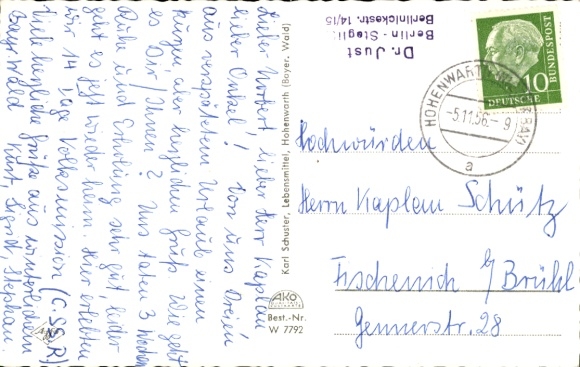 Lieber Norbert, lieber Herr Kaplan
lieber Onkel! Von uns Dreien
aus verspätetem Urlaub einen
kurzen aber herzlichen Gruß. Wie geht
es Dir/Ihnen? Uns taten 3 Wochen
Ruhe und Erholung sehr gut, leider
geht es jetzt wieder heim. Hier erlebten
wir 14 tage Volksmission (C.S.S.R)
Viele herzliche Grüße aus winterlichem
Bayr. Wald
Kurt, Sigrid, Stephan
Karl Schuster, Lebensmittel, Hohenwarth (Bayer. Wald)
AKO
Best.-Nr.
W 7792
Dr. Just
Berlin - Stegli
Berlinickestr. 14/15
DEUTSCHE
BUNDESPOST
10
HOHENWARTH
-5.11.56.-9
a
Hochwürden
Herrn Kaplan Schütz
Fischenich b/Brühl
Gennerstr. 28